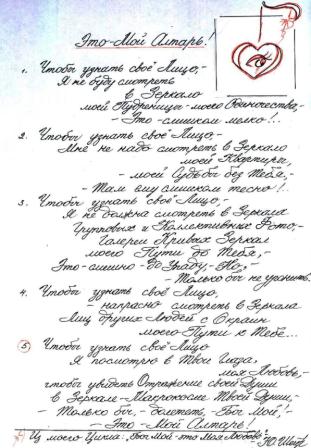 Это - Мой Алтарь!
1. Чтобы узнать своё Лицо, -
Я не буду смотреть
в Зеркало
моей Пудреницы - моего Одиночества, -
- Это - слишком мелко!..
2. Чтобы узнать своё Лицо, -
Мне не надо смотреть в Зеркало
моей Квартиры,
- моей Судьбы без Тебя, -
- Там ему слишком тесно!..
3. Чтобы узнать своё Лицо, -
Я не должна смотреть в Зеркала
Групповых и Коллективных Фото, -
Галереи Кривых Зеркал
моего Пути до Тебя, -
Это - смешно - Но, -
- Только бы не
4. Чтобы узнать своё Лицо,
- напрасно смотреть в Зеркала
Лиц других Людей с Окраин
моего Пути к Тебе...
5 Чтобы узнать своё Лицо
Я посмотрю в Твои Глаза,
моя Любовь, -
чтобы увидеть Отражение своей Души
в Зеркале - Макрокосме Твоей Души, -
- Только бы, - долететь, - Бог Мой! -
- Это - Мой Алтарь!
Из моего Цикла: "Бог Мой - это Моя Любовь"